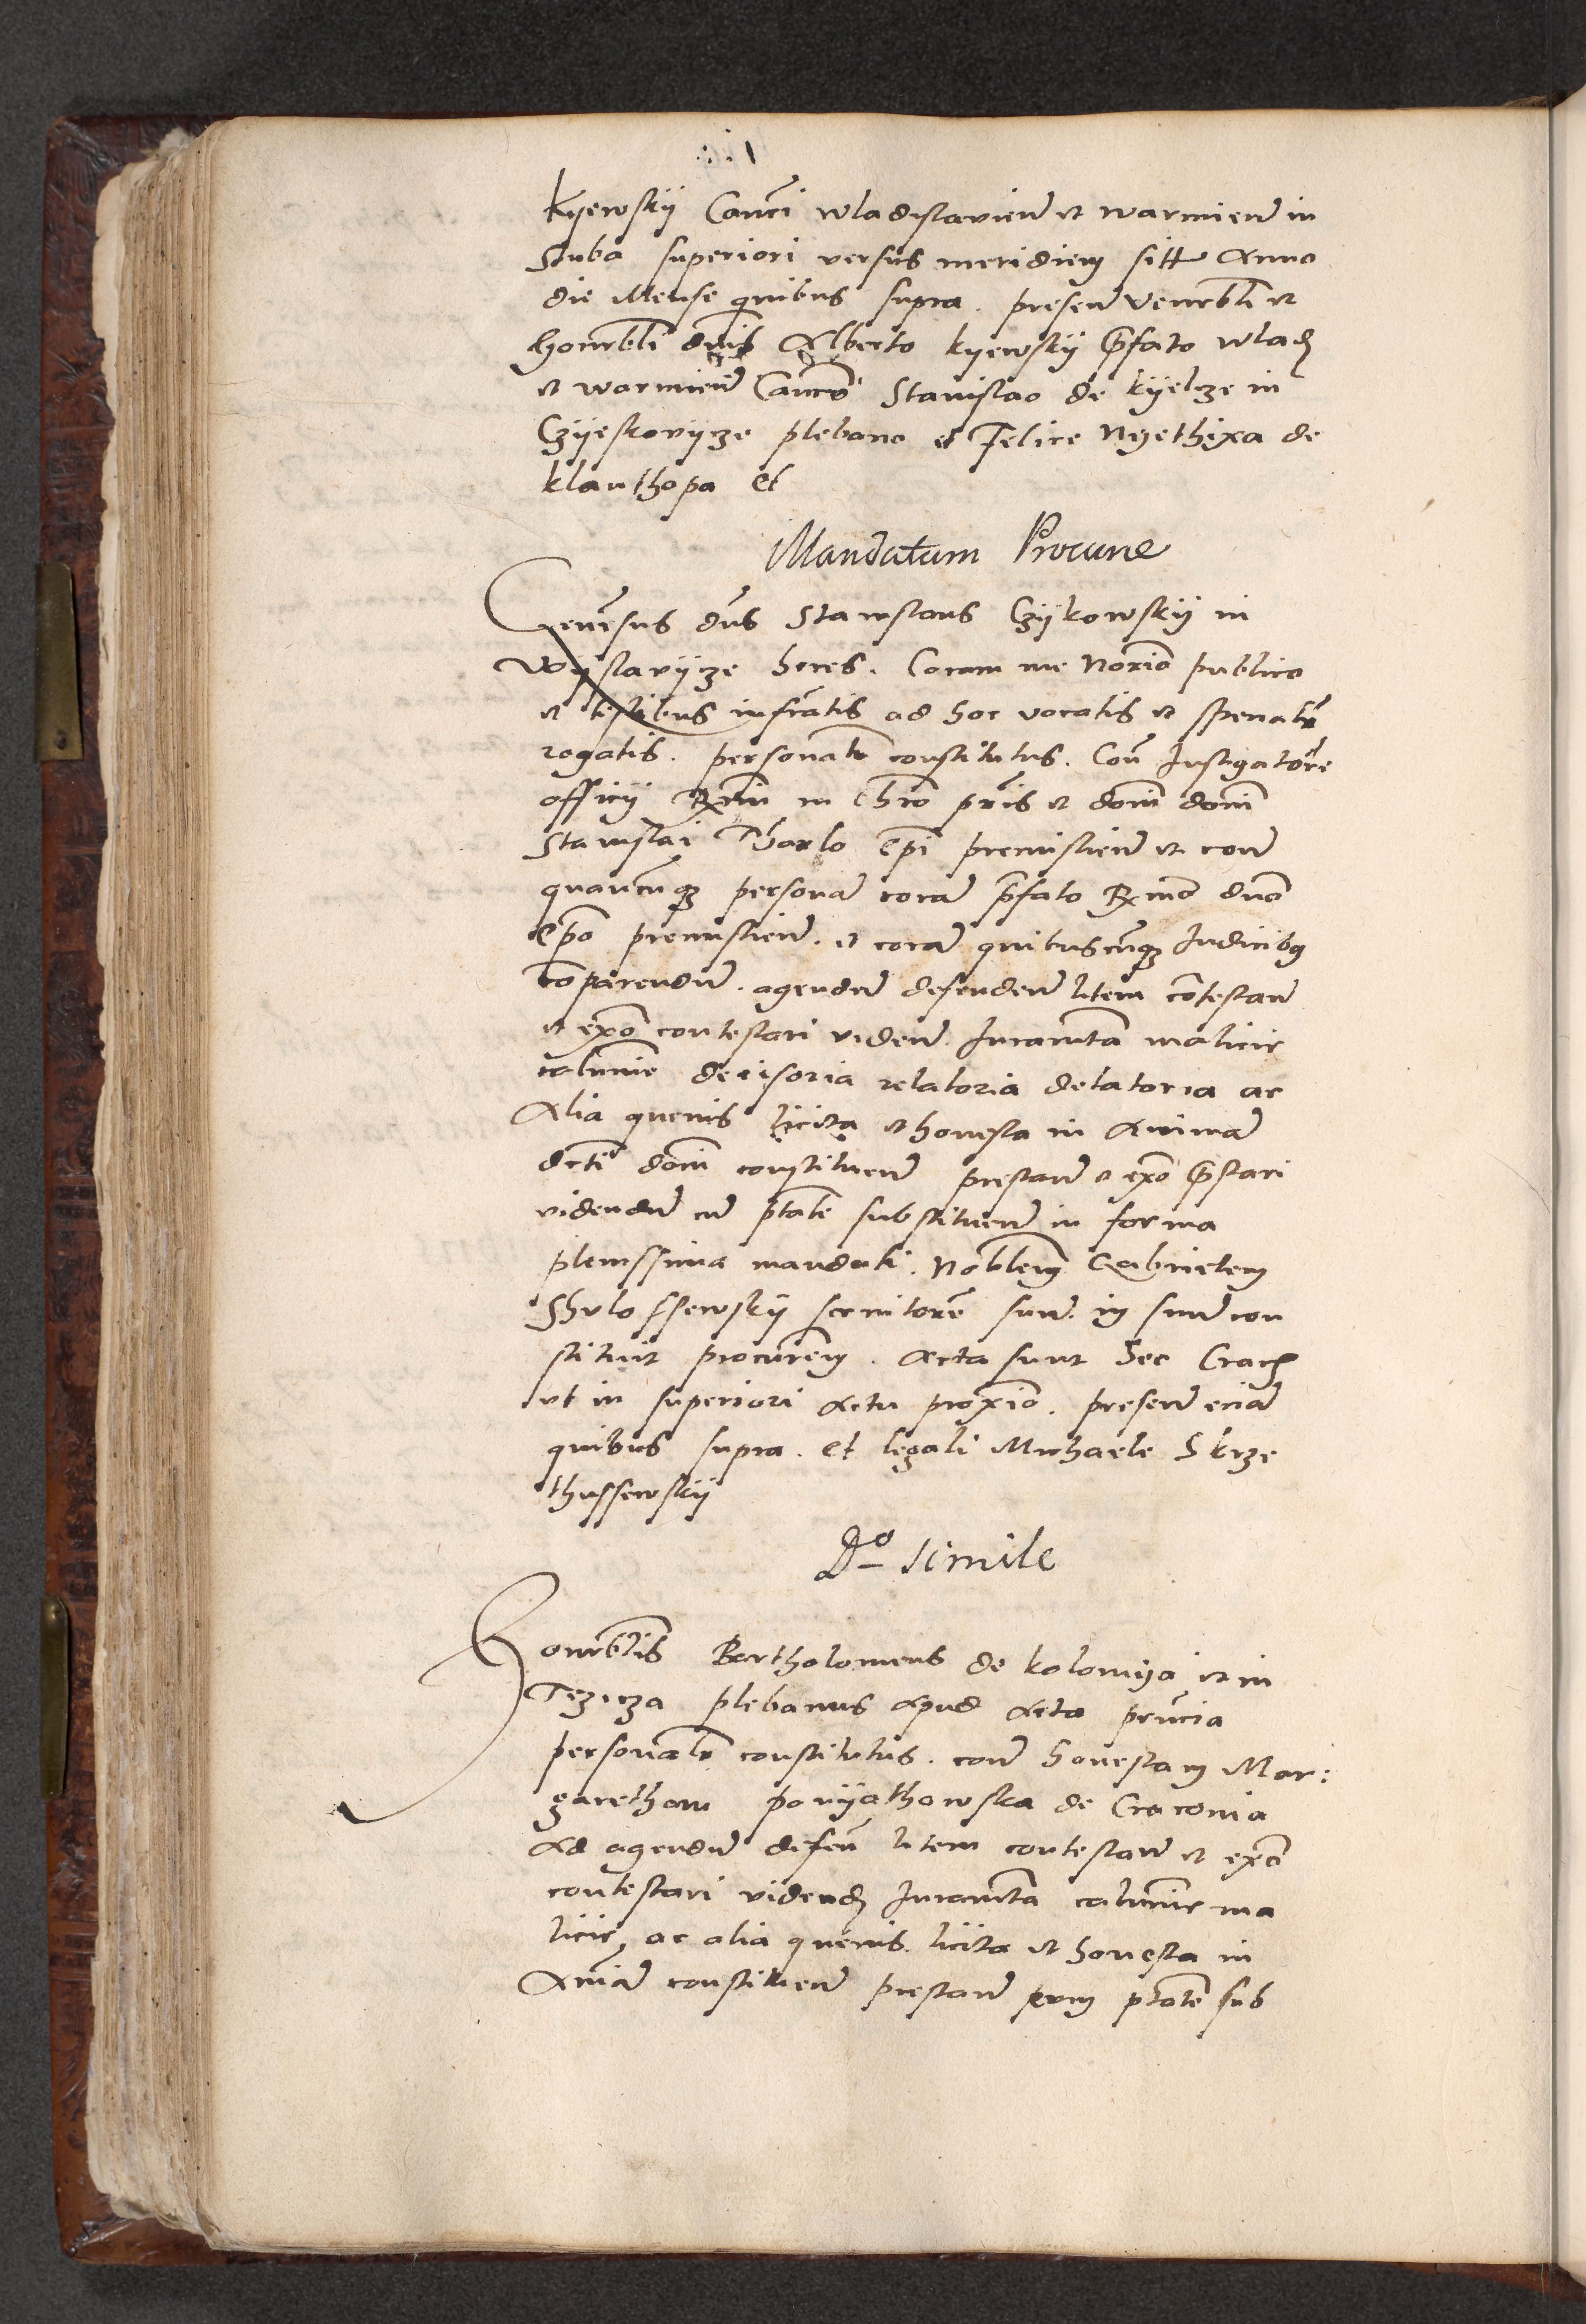 Kyewskij Canci Wladislavien et Warmien in
Stuba superiori versus meridiem sitt Anno
die Mense quibus supra. presen Venerbli et
honorbli dnis Alberto Kyewskij pfato Wlad
et Warmien Canco Stanislao de Kyelcze in
Czyeskovijcze plebano et Felice Nyethixa de
Klanthopa et
Mandatum Procurne
Genersus dns Stanislaus Czijkowskij in
Woyslavijcze heres. Coram me Norio publico
et testibus infratis ad hoc vocatis et spenatr
rogatis. personatr constitutus. Con Instigatore
officij Rmi in Chro pris et domi domi
Stanislai Tharlo Epi premislien et con
quamcunq persona cora pfato Rmo dno
Epo premislien. et cora quibuscunq Judicibq
comparendum. agendum defenden litem contestan
et expo contestari viden. Juramta malicie
calumnie decisoria relatoria delatoria ac
Alia quevis licita et honesta in Anima
dcti domi constituen prestan et expo pstari
videndum cu ptate substituen in forma
plenissima mandati. Noblem Gabrielem
Shulossewskij servitore suum. in suum con
stituit procurem. Acta sunt hec Crac
ut in superiori Actu proxio. presen ecia
quibus supra. et legali Michaele Skrze
thussewskij
Do simile
Honorblis Bartholomeus de Kolomya et in
Tczicza plebanus Apud Acta prncia
personatr constitutus. con honestam Mar:
garetham ponyathowska de Craconia
Ad agendum defen litem contestan et expo
contestari vidend Juramta calumnie ma
licie, ac alia quevis. licita et honesta in
Aniam constituen prestan cum ptate sub